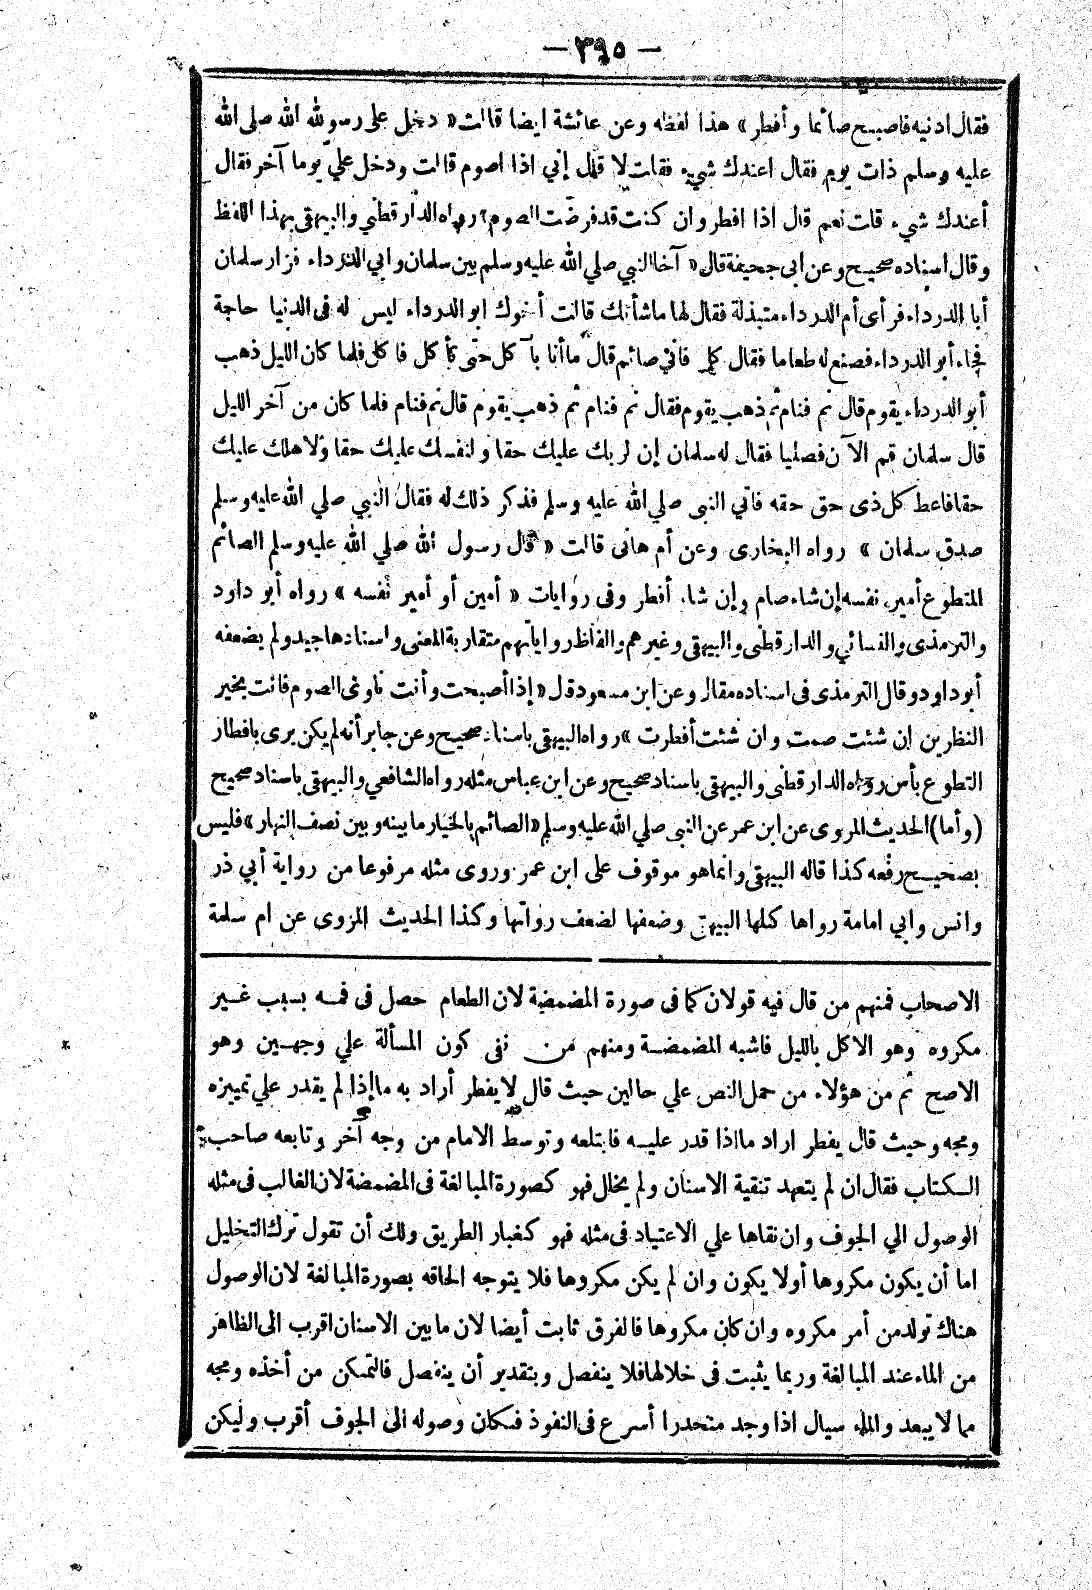 — ٣٩٥ —
فقال ادنيه فاصبح صائما وأفطر» هذا لفظه وعن عائشة ايضا قالت « دخل على رسول الله صلى الله
عليه وسلم ذات يوم فقال اعندك شيء فقلت لا قال إني اذا اصوم قالت ودخل علي يوما آخر فقال
أعندك شيء قلت نعم قال اذا افطر وان كنت قد فرضت الصوم» رواه الدارقطني والبيهقى بهذا اللفظ
وقال اسناده صحيح وعن ابى جحيفة قال « آخا النبي صلي الله عليه وسلم بين سلمان وابي الدرداء فزار سلمان
أبا الدرداء فرأى أم الدرداء متبذلة فقال لها ما شأنك قالت أخوك ابو الدرداء ليس له فى الدنيا حاجة
فجاء أبو الدرداء فصنع له طعاما فقال كل فاني صائم قال ما أنا بآكل حتى تأكل فاكل فلما كان الليل ذهب
أبو الدرداء يقوم قال نم فنام ثم ذهب يقوم فقال نم فنام ثم ذهب يقوم قال نم فنام فلما كان من آخر الليل
قال سلمان قم الآن فصليا فقال له سلمان إن لربك عليك حقا ولنفسك عليك حقا ولاهلك عليك
حقا فاعط كل ذى حق حقه فاتي النبى صلي الله عليه وسلم فذكر ذلك له فقال النبي صلي الله عليه وسلم
صدق سلمان » رواه البخارى وعن أم هانى قالت « قال رسول الله صلي الله عليه وسلم الصائم
المتطوع أمير نفسه إن شاء صام وإن شاء أفطر وفى روايات « أمين أو أمير نفسه » رواه أبو داود
والترمذى والنسائي والدارقطنى والبيهقى وغيرهم والفاظ رواياتهم متقاربة المعنى واسنادها جيد ولم يضعفه
أبو داود وقال الترمذى فى اسناده مقال وعن ابن مسعود قال « إذا أصبحت وأنت ناوى الصوم فانت بخير
النظرين ان شئت صمت وان شئت أفطرت » رواه البيهقى باسناد صحيح وعن جابر أنه لم يكن يرى بافطار
التطوع بأس رواه الدارقطنى والبيهقى باسناد صحيح وعن ابن عباس مثله رواه الشافعي والبيهقى باسناد صحيح
(وأما) الحديث المروى عن ابن عمر عن النبى صلي الله عليه وسلم « الصائم بالخيار ما بينه وبين نصف النهار» فليس
بصحيح رفعه كذا قاله البيهقى وانما هو موقوف على ابن عمر وروى مثله مرفوعا من رواية أبي ذر
وانس وابي امامة رواها كلها البيهقى وضعفها لضعف رواتها وكذا الحديث المروى عن ام سلمة
الاصحاب فمنهم من قال فيه قولان كما فى صورة المضمضة لان الطعام حصل فى فمه بسبب غير
مكروه وهو الاكل بالليل فاشبه المضمضة ومنهم من نفى كون المسألة علي وجهين وهو
الاصح ثم من هؤلاء من حمل النص علي حالين حيث قال لا يفطر أراد به ما إذا لم يقدر علي تمييزه
ومجه وحيث قال يفطر اراد ما اذا قدر عليه فابتلعه وتوسط الامام من وجه آخر وتابعه صاحب
الكتاب فقال ان لم يتعهد تنقية الاسنان ولم يخلل فهو كصورة المبالغة فى المضمضة لان الغالب فى مثله
الوصول الي الجوف وان نقاها علي الاعتياد فى مثله فهو كغبار الطريق ولك أن تقول ترك التخليل
اما أن يكون مكروها أولا يكون وان لم يكن مكروها فلا يتوجه الحاقه بصورة المبالغة لان الوصول
هناك تولد من أمر مكروه وان كان مكروها فالفرق ثابت أيضا لان ما بين الاسنان اقرب الى الظاهر
من الماء عند المبالغة وربما يثبت فى خلالها فلا ينفصل وبتقدير أن ينفصل فالتمكن من أخذه ومجه
مما لا يبعد والماء سيال اذا وجد منحدرا أسرع فى النفوذ فكان وصوله الى الجوف أقرب وليكن